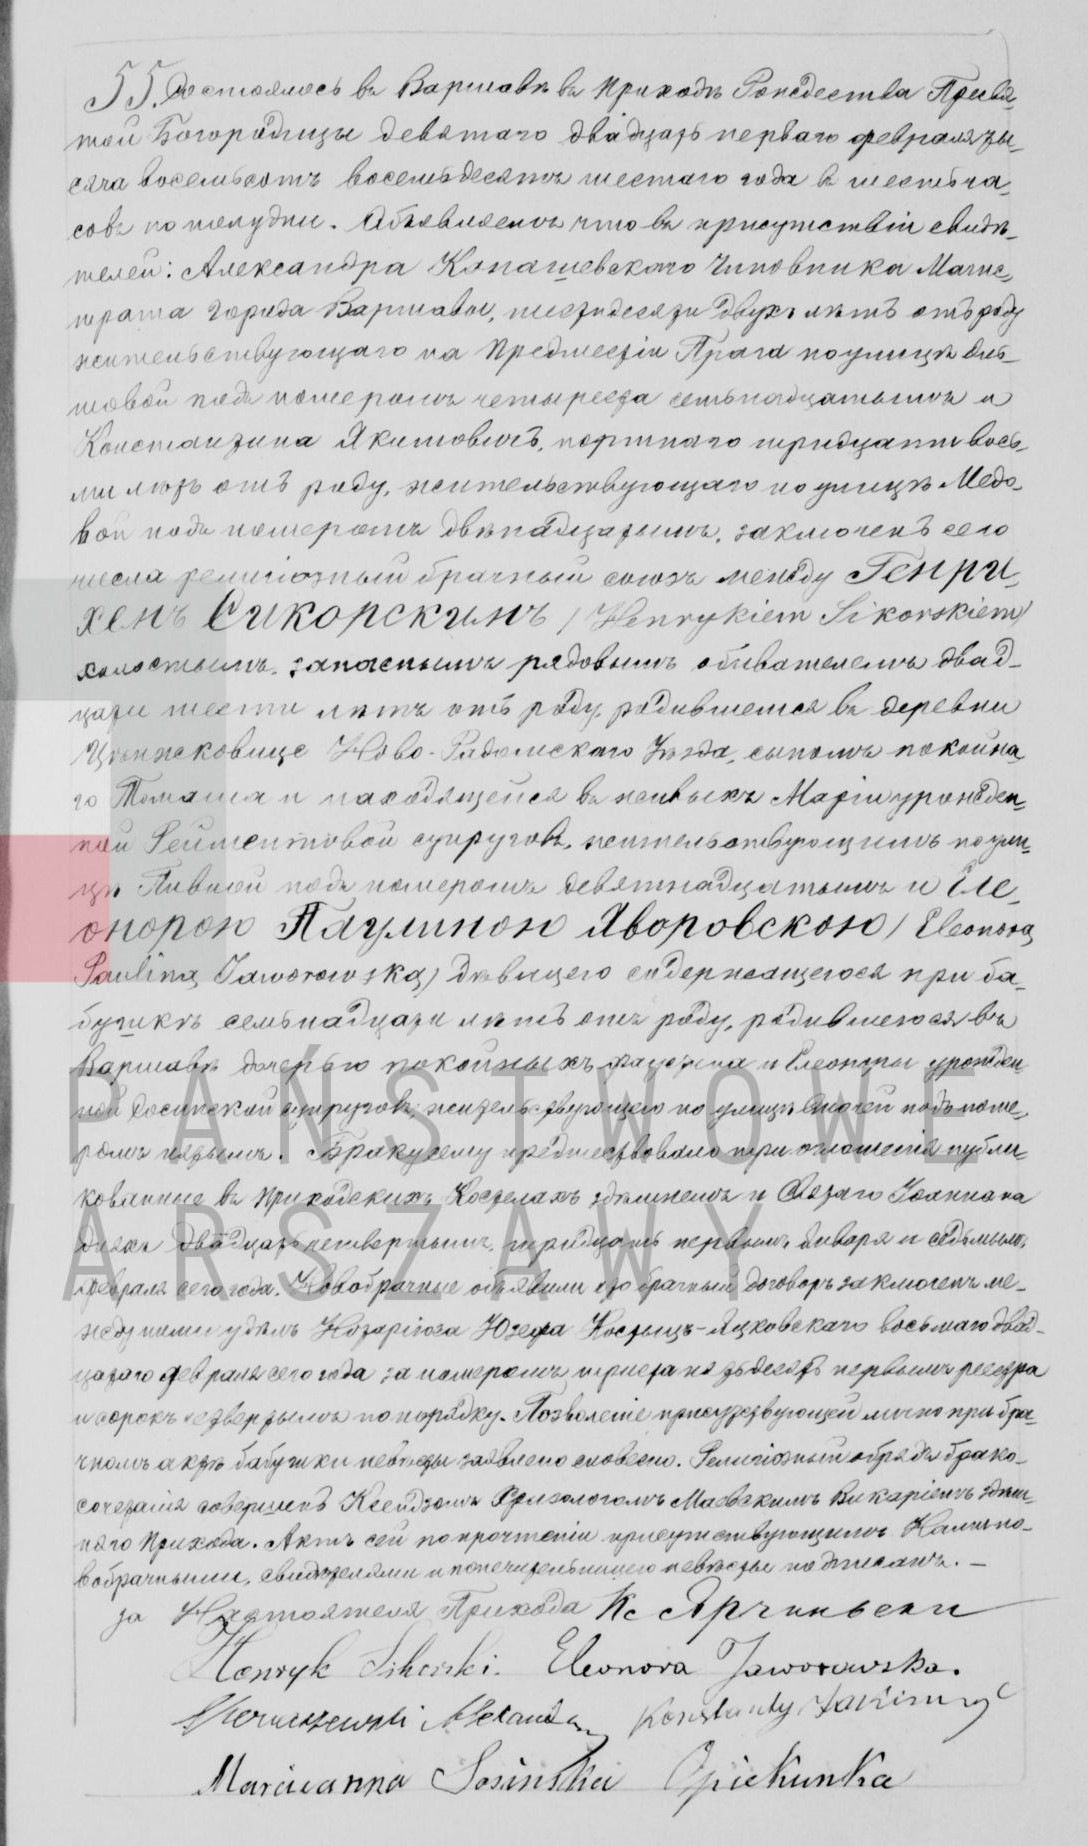 55. Состоялось въ Варшавѣ въ Приходѣ Рождества Пресвя-
той Богородицы девятаго двадцать перваго февраля ты-
сяча восемьсотъ восемьдесятъ шестаго года въ шесть ча-
совъ по полудни. Объявляемъ что въ присутствіи свидѣ-
телей: Александра Чиновника Магис-
трата города Варшавы, шестидесяти двухъ лѣтъ отъ роду
жительствующаго на Предместіи Прага по улицѣ Оль-
шовой подъ номеромъ четыреста семьнадцатымъ и
Константина Якимовичъ, портнаго тридцати вось-
ми лѣтъ отъ роду, жительствующаго по улицѣ Медо-
вой подъ номеромъ двѣнадцатымъ, заключенъ сего
числа религіозный брачный союзъ между Генри-
хомъ Сикорскимъ / Henrykiem Sikorskiem/
холостымъ, запаснымъ рядовымъ обывателемъ двад-
цати шести лѣтъ отъ роду, родившемся въ деревни
Ново-Радомскаго Уѣзда, сыномъ покойна-
го Томаша и находящейся въ живыхъ Маріи урожден-
ной супруговъ, жительствующимъ по ули-
цѣ Пивной подъ номеромъ девятнадцатымъ и Еле-
онорою Паулиною Яворовскою / Eleonorą
Pauliną Jaworowską) дѣвицею содержащеюся при ба-
бушкѣ семьнадцати лѣтъ отъ роду, родившеюся въ
Варшавѣ дочерью покойныхъ и Елеоноры урожден-
ной супруговъ, жительствующею по улицѣ подъ номе-
ромъ пятымъ. Браку сему предшествовало три оглашенія публи-
кованные въ Приходскихъ Костелахъ здѣшнемъ и Святаго Іоанна въ
дняхъ двадцать четвертымъ, тридцать первымъ Января и седьмымъ
февраля сего года. Новобрачные объявили что брачный договоръ заключенъ ме-
жду ними у дѣлъ Нотаріуса Юзефа восьмаго двад-
цатаго февраля сего года за номеромъ триста пятьдесятъ первымъ реестра
и сорокъ четвертымъ по порядку. Позволеніе присутствующей лично при бра-
чномъ актѣ бабушки невѣсты заявлено словесно. Религіозный обрядъ брако-
сочетанія совершенъ Ксендзомъ Хризологомъ Маевскимъ Викаріемъ здѣш-
няго Прихода. Актъ сей по прочтеніи присутствующимъ Нами, но-
вобрачными, свидѣтелями и попечительницею невѣсты подписанъ. —
за Настоятеля Прихода Кс
Henryk Sikorski. Eleonora Jaworowska.
Konstanty Jakimowicz
Maryanna Sosińska Opiekunka
PAŃSTWOWE
ARSZAWY